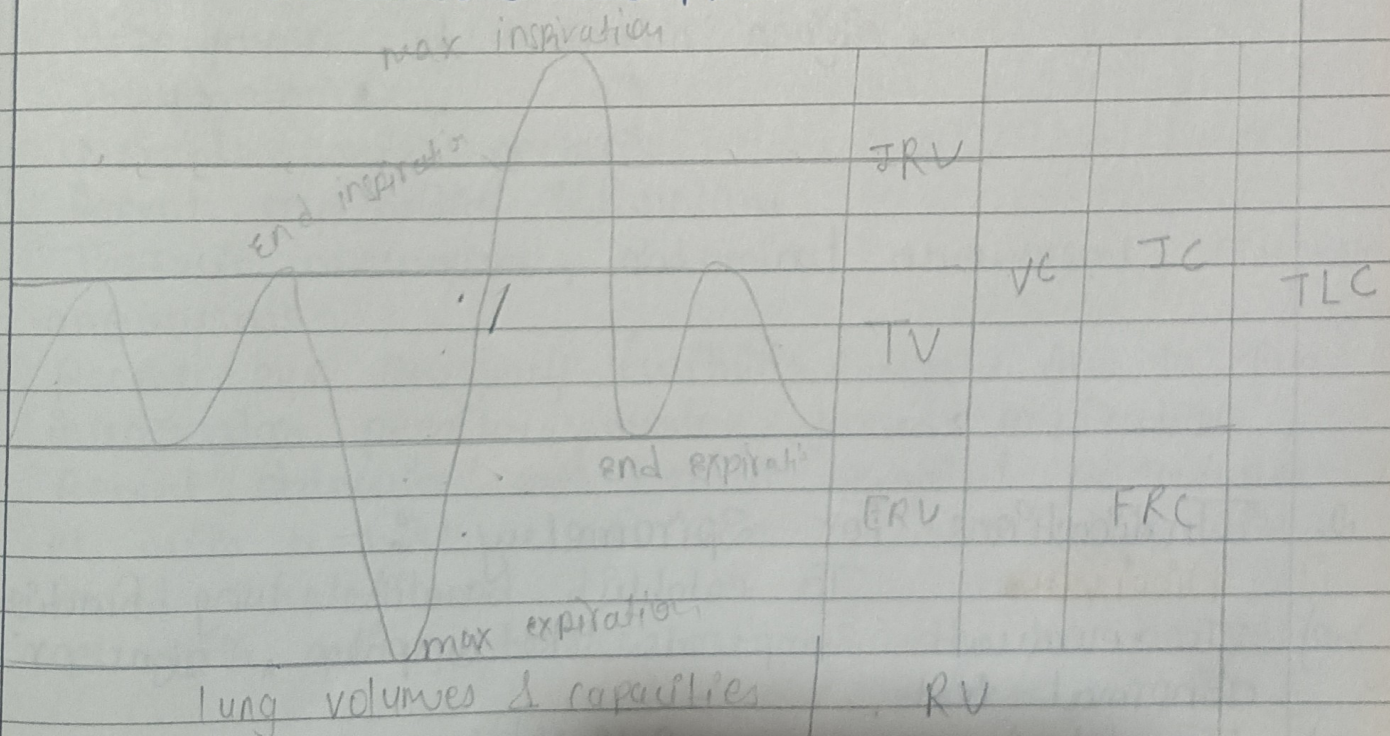 max inspiration
End inspiratio
IRV
VC
IC
TLC
TV
end expirati
ERV
FRC
max expiration
lung volumes & capacities
RV